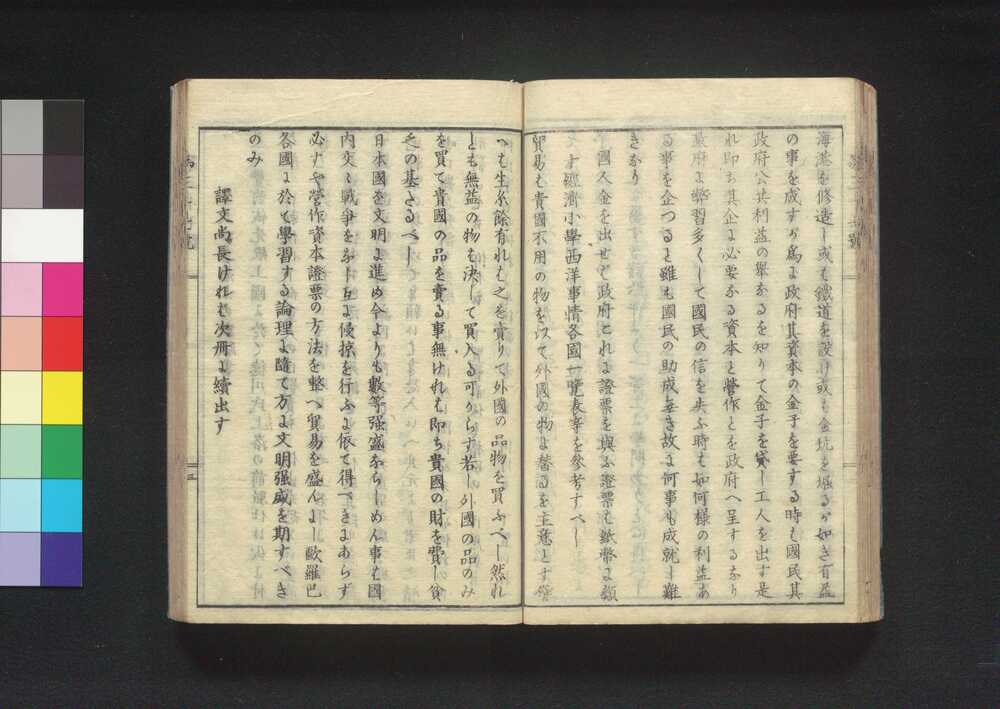 海港を修造し或も鐵道を設け或も金坑を堀るが如き有益
の事を成すが爲よ政府其資本の金子を要する時も國民其
政府公共利益の擧なるを知りて金子を貸し工人を出す是
れ即ち其企よ必要なる資本と營作とを政府へ呈するなり
政府よ弊習多くして國民の信を失ふ時も如何樣の利益あ
る事を企つると雖も國民の助成無き故よ何事も成就し難
きなり
國人金を出せバ政府これよ證票を與ふ證票も紙幣よ類
す經濟小學西洋事情各國一覽表等を參考すべし
貿易も貴國不用の物を以て外國の物よ替るを主意とす譬
へも生糸餘有れも之を賣りて外國の品物を買ふべし然れ
とも無益の物も決して買入る可からす若し外國の品のみ
を買て貴國の品を賣る事無けれも即ち貴國の財を費し貧
乏の基たるべし
日本國を文明よ進め今よりも數等强盛ならしめん事も國
内交々戰爭をなし互よ侵掠を行ふよ依て得べきよあらず
必すや營作資本證票の方法を整へ貿易を盛んよし歐羅巴
各國よ於て學習する論理よ隨て方よ文明强盛を期すべき
のみ
譯文尚長けれも次冊よ續出す